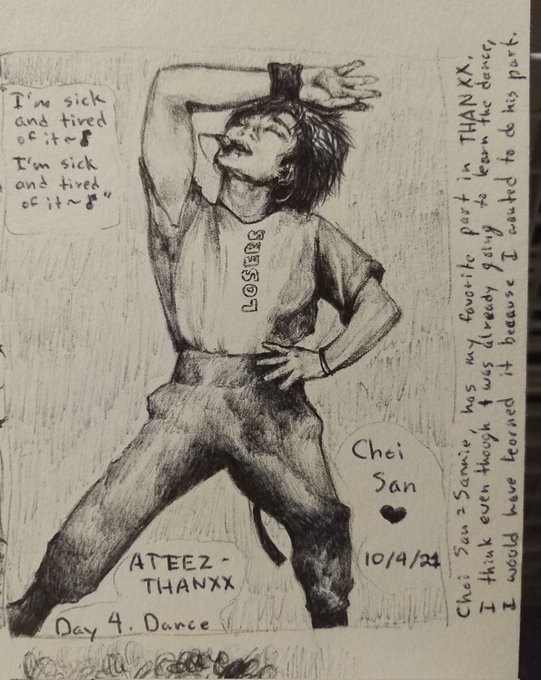 "I'm sick
and tired
of it~♪
I'm sick
and tired
of it~♪"
Choi
San
♥
10/4/21
ATEEZ -
THANXX
Day 4. Dance
Choi San = Sannie, has my favorite part in THANXX.
I think even though I was already going to learn the dance,
I would have learned it because I wanted to do his part.